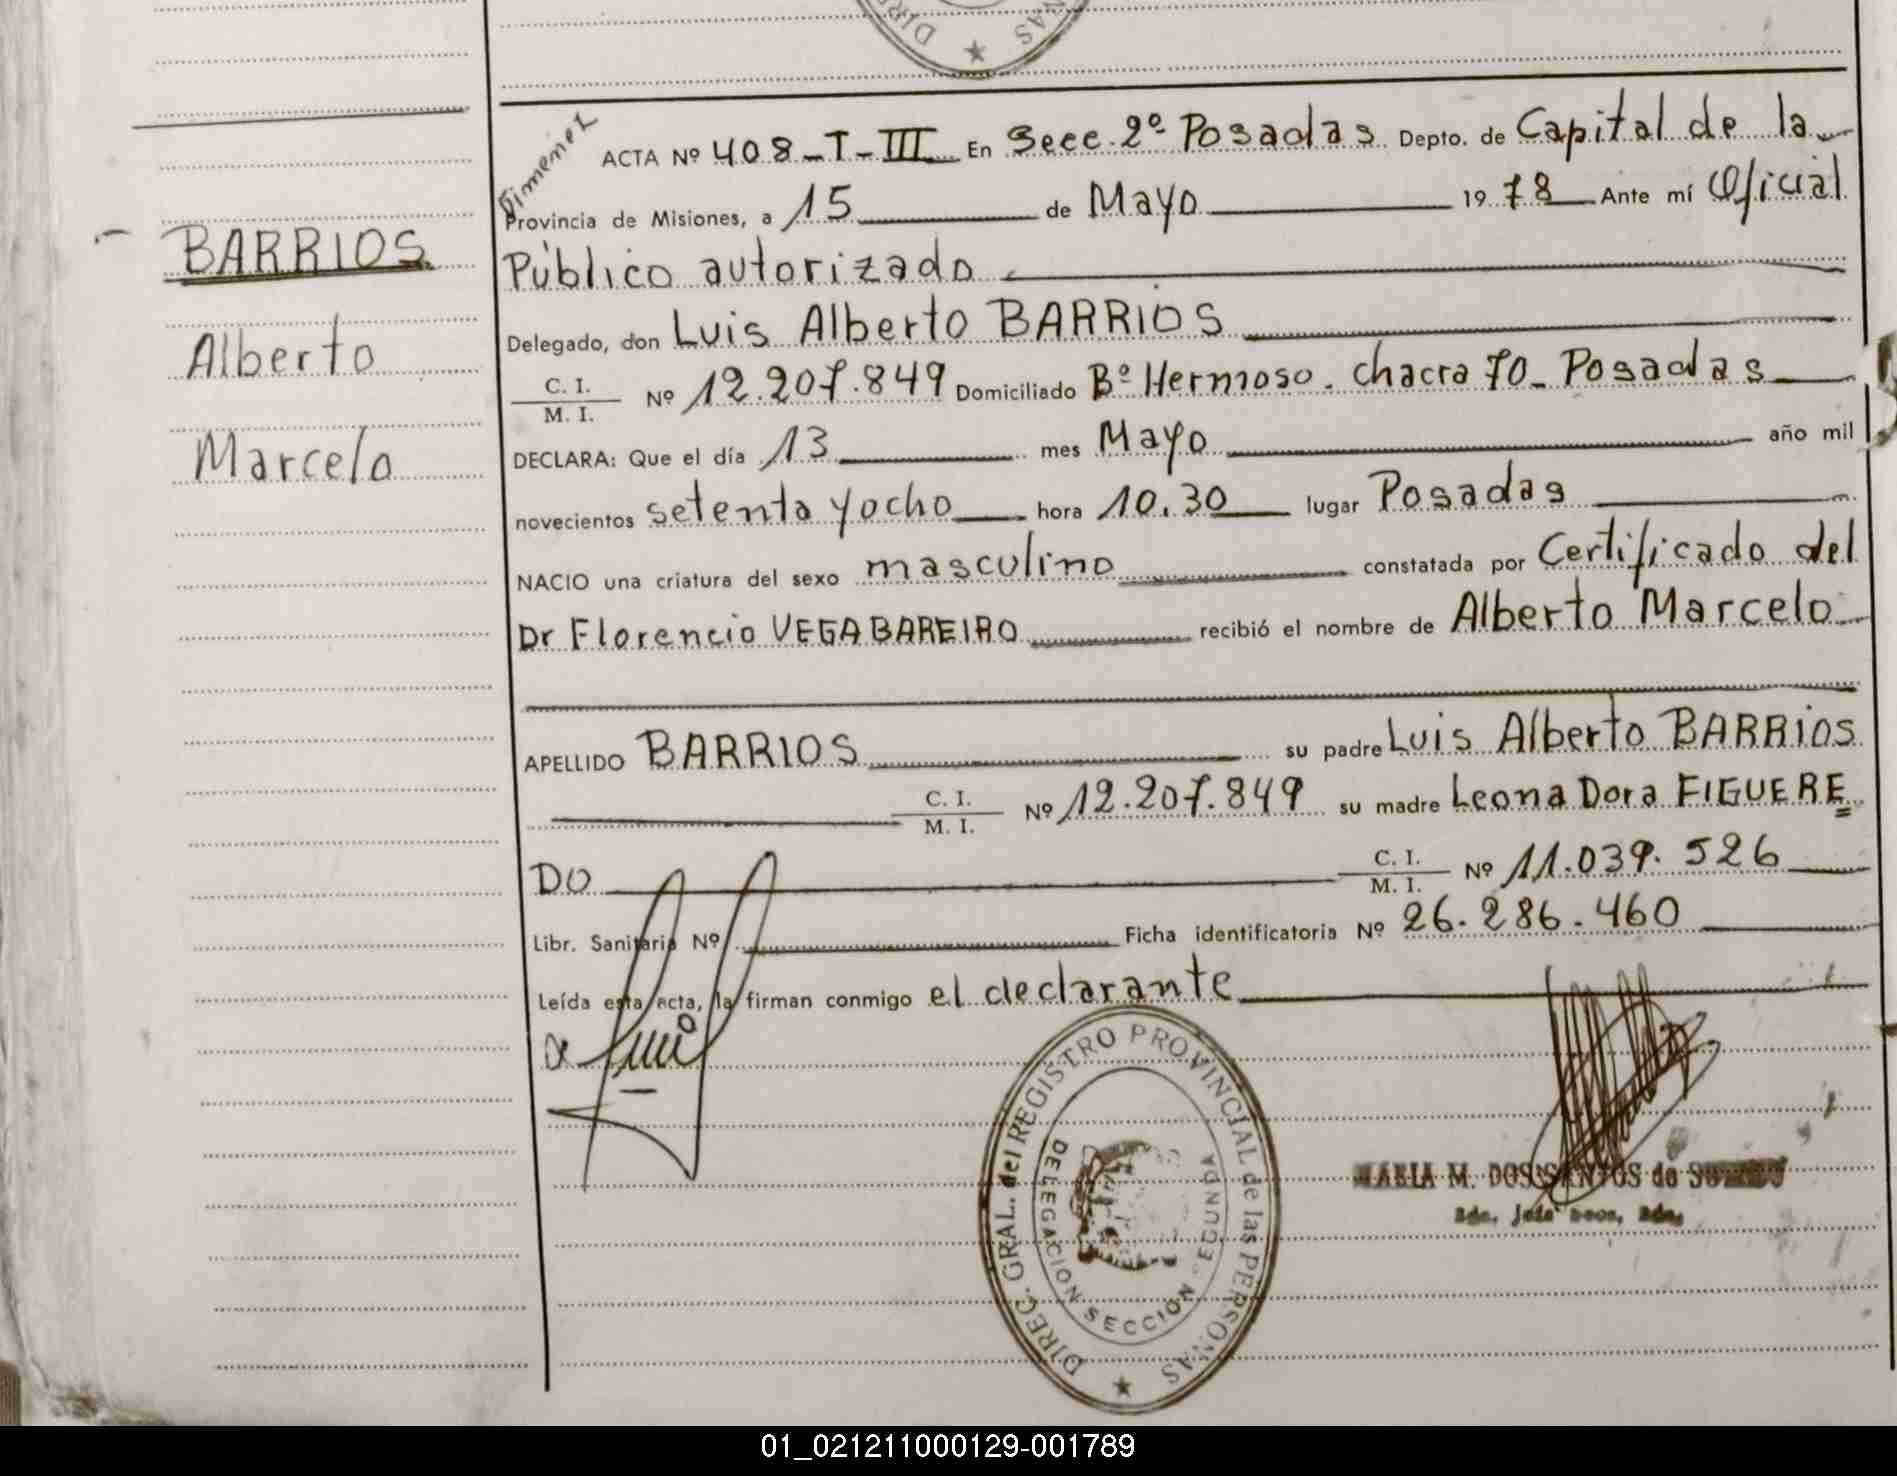 DIREC
NAS
★
BARRIOS
Alberto
Marcelo
Gimenez
ACTA Nº 408-T-III En Secc. 2º Posadas Depto. de Capital de la
Provincia de Misiones, a 15 de Mayo 1978 Ante mí Oficial
Público autorizado
Delegado, don Luis Alberto BARRIOS
C. I.
M. I. Nº 12.207.849 Domiciliado Bº Hermoso. chacra 70- Posadas
DECLARA: Que el día 13 mes Mayo año mil
novecientos setenta y ocho hora 10.30 lugar Posadas
NACIO una criatura del sexo masculino constatada por Certificado del
Dr Florencio VEGA BAREIRO recibió el nombre de Alberto Marcelo
APELLIDO BARRIOS su padre Luis Alberto BARRIOS
C. I.
M. I. Nº 12.207.849 su madre Leona Dora FIGUERE
DO C. I.
M. I. Nº 11.039.526
Libr. Sanitaria Nº Ficha identificatoria Nº 26.286.460
Leída esta acta, la firman conmigo el declarante
DIREC. GRAL. del REGISTRO PROVINCIAL de las PERSONAS
DELEGACION SECCION SEGUNDA
★
MARIA M. DOS SANTOS de
01_021211000129-001789